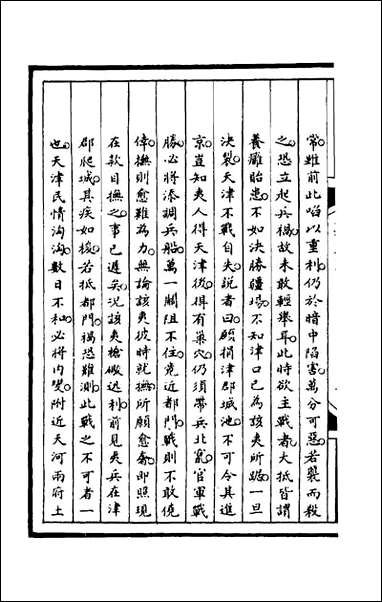 常雖前此啗以重利仍於暗中陷害萬分可惡若襲而殺
之恐立起兵禍故未敢輕舉耳此時欲主戰者大抵皆謂
養癰貽患不如決勝疆埸不知津口已為該夷所踞一旦
決裂天津不戰自失說者曰願捐津郡城池不可令其進
京豈知夷人得天津後俱有巢穴仍須帶兵北竄官軍戰
勝必將添調兵船萬一闌阻不住竟近都門戰則不敢僥
倖撫則愈難為力無論該夷彼時就撫所願愈奢即照現
在款目撫之事已遲矣況該夷槍礮迅利前見夷兵在津
郡爬城其疾如梭若抵都門禍恐難測此戰之不可者一
也天津民情洶洶數日不和必將內變附近天河兩府土